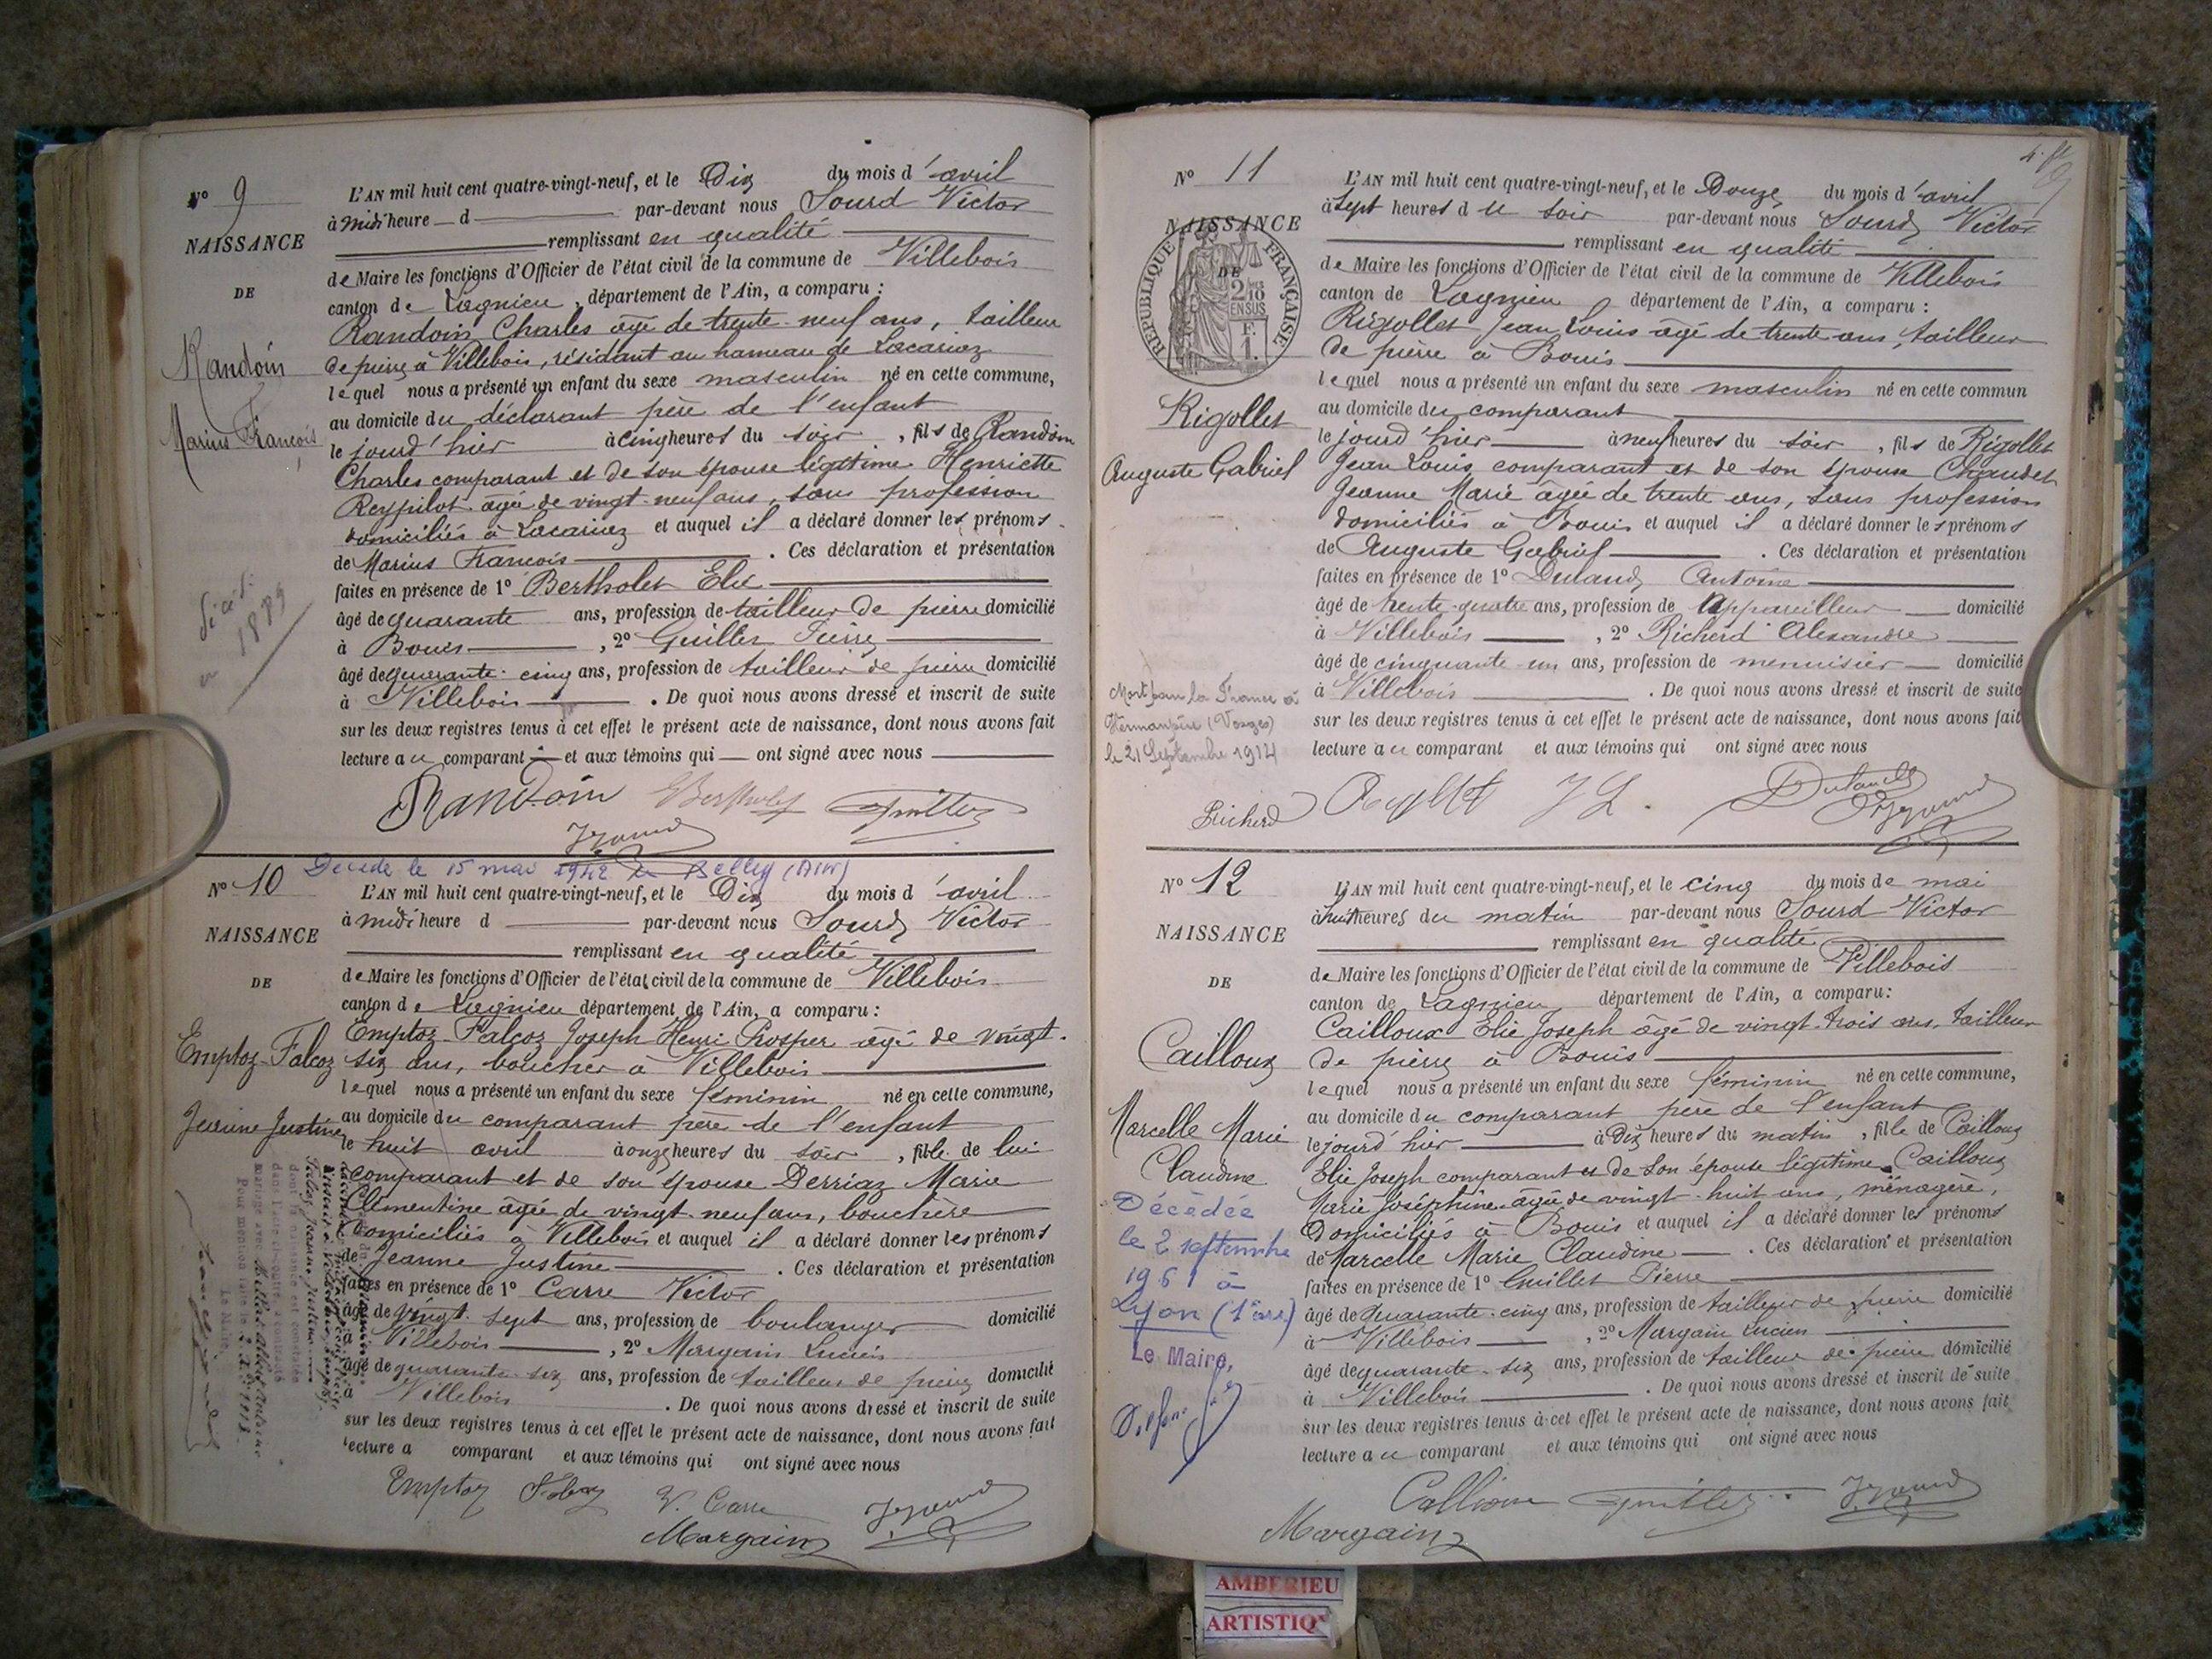 N° 9
NAISSANCE
DE
Randoin
Marius François
1889
L'AN mil huit cent quatre-vingt-neuf, et le Dix du mois d'avril
à midi heure d par-devant nous Sourd Victor
remplissant en qualité
de Maire les fonctions d'Officier de l'état civil de la commune de Villebois
canton de Lagnieu, département de l'Ain, a comparu :
Randoin Charles âgé de trente-neuf ans, tailleur
de pierre à Villebois, résidant au hameau de Lacariaz
lequel nous a présenté un enfant du sexe masculin né en cette commune,
au domicile du déclarant père de l'enfant
le jourd'hier à cinq heures du soir, fils de Randoin
Charles comparant et de son épouse légitime Henriette
Reypilot âgée de vingt-neuf ans, sans profession
domiciliés à Lacariaz et auquel il a déclaré donner les prénoms
de Marius Francois . Ces déclaration et présentation
faites en présence de 1° Bertholet Elie
âgé de quarante ans, profession de tailleur de pierre domicilié
à Bouis , 2° Guillet Pierre
âgé de quarante-cinq ans, profession de tailleur de pierre domicilié
à Villebois . De quoi nous avons dressé et inscrit de suite
sur les deux registres tenus à cet effet le présent acte de naissance, dont nous avons fait
lecture au comparant et aux témoins qui ont signé avec nous
Randoin Bertholet Guillet
N° 10
Décédé le 15 mai 1942 à Belley (Ain)
NAISSANCE
DE
Emptoz-Falcoz
Jeanne Justine
L'AN mil huit cent quatre-vingt-neuf, et le Dix du mois d'avril
à midi heure d par-devant nous Sourd Victor
remplissant en qualité
de Maire les fonctions d'Officier de l'état civil de la commune de Villebois
canton de Lagnieu département de l'Ain, a comparu :
Emptoz-Falcoz Joseph Henri Prosper âgé de vingt-
six ans, boucher à Villebois
lequel nous a présenté un enfant du sexe féminin né en cette commune,
au domicile du comparant père de l'enfant
le huit avril à onze heures du soir, fille de lui
comparant et de son épouse Derriaz Marie
Clémentine âgée de vingt-neuf ans, bouchère
domiciliés à Villebois et auquel il a déclaré donner les prénoms
de Jeanne Justine . Ces déclaration et présentation
faites en présence de 1° Carre Victor
âgé de vingt-sept ans, profession de boulanger domicilié
à Villebois , 2° Margain Lucien
âgé de quarante-six ans, profession de tailleur de pierre domicilié
à Villebois . De quoi nous avons dressé et inscrit de suite
sur les deux registres tenus à cet effet le présent acte de naissance, dont nous avons fait
lecture a comparant et aux témoins qui ont signé avec nous
Emptoz Falcoz V. Carre
Margain
N° 11
NAISSANCE
DE
RÉPUBLIQUE FRANÇAISE
2/10 EN SUS
F. 1.
Rigollet
Auguste Gabriel
Mort pour la France à
(Vosges)
le 21 Septembre 1914
L'AN mil huit cent quatre-vingt-neuf, et le Douze du mois d'avril
à sept heures du soir par-devant nous Sourd Victor
remplissant en qualité
de Maire les fonctions d'Officier de l'état civil de la commune de Villebois
canton de Lagnieu, département de l'Ain, a comparu :
Rigollet Jean Louis âgé de trente ans, tailleur
de pierre à Bouis
lequel nous a présenté un enfant du sexe masculin né en cette commun
au domicile du comparant
le jourd'hier à neuf heures du soir, fils de Rigollet
Jean Louis comparant et de son épouse Chaudet
Jeanne Marie âgée de trente ans, sans profession
domiciliés à Bouis et auquel il a déclaré donner les prénoms
de Auguste Gabriel . Ces déclaration et présentation
faites en présence de 1° Dulaud Antoine
âgé de trente-quatre ans, profession de Appareilleur domicilié
à Villebois , 2° Richerd Alexandre
âgé de cinquante-un ans, profession de menuisier domicilié
à Villebois . De quoi nous avons dressé et inscrit de suite
sur les deux registres tenus à cet effet le présent acte de naissance, dont nous avons fait
lecture au comparant et aux témoins qui ont signé avec nous
Richerd Rigollet J L. Dulaud
N° 12
NAISSANCE
DE
Cailloux
Marcelle Marie
Claudine
Décédée
le 2 septembre
1961 à
Lyon (1er arr)
Le Maire,
L'AN mil huit cent quatre-vingt-neuf, et le cinq du mois de mai
à huit heures du matin par-devant nous Sourd Victor
remplissant en qualité
de Maire les fonctions d'Officier de l'état civil de la commune de Villebois
canton de Lagnieu, département de l'Ain, a comparu:
Cailloux Elie Joseph âgé de vingt-trois ans, tailleur
de pierre à Bouis
lequel nous a présenté un enfant du sexe féminin né en cette commune,
au domicile du comparant père de l'enfant
le jourd'hier à Dix heures du matin, fille de Cailloux
Elie Joseph comparant et de son épouse légitime Cailloux
Marie Joséphine âgée de vingt-huit ans, ménagère,
Domiciliés à Bouis et auquel il a déclaré donner les prénoms
de Marcelle Marie Claudine . Ces déclaration et présentation
faites en présence de 1° Guillet Pierre
âgé de quarante-cinq ans, profession de tailleur de pierre domicilié
à Villebois , 2° Margain Lucien
âgé de quarante-six ans, profession de tailleur de pierre domicilié
à Villebois . De quoi nous avons dressé et inscrit de suite
sur les deux registres tenus à cet effet le présent acte de naissance, dont nous avons fait
lecture au comparant et aux témoins qui ont signé avec nous
Guillet
Margain
AMBERIEU
ARTISTIQ